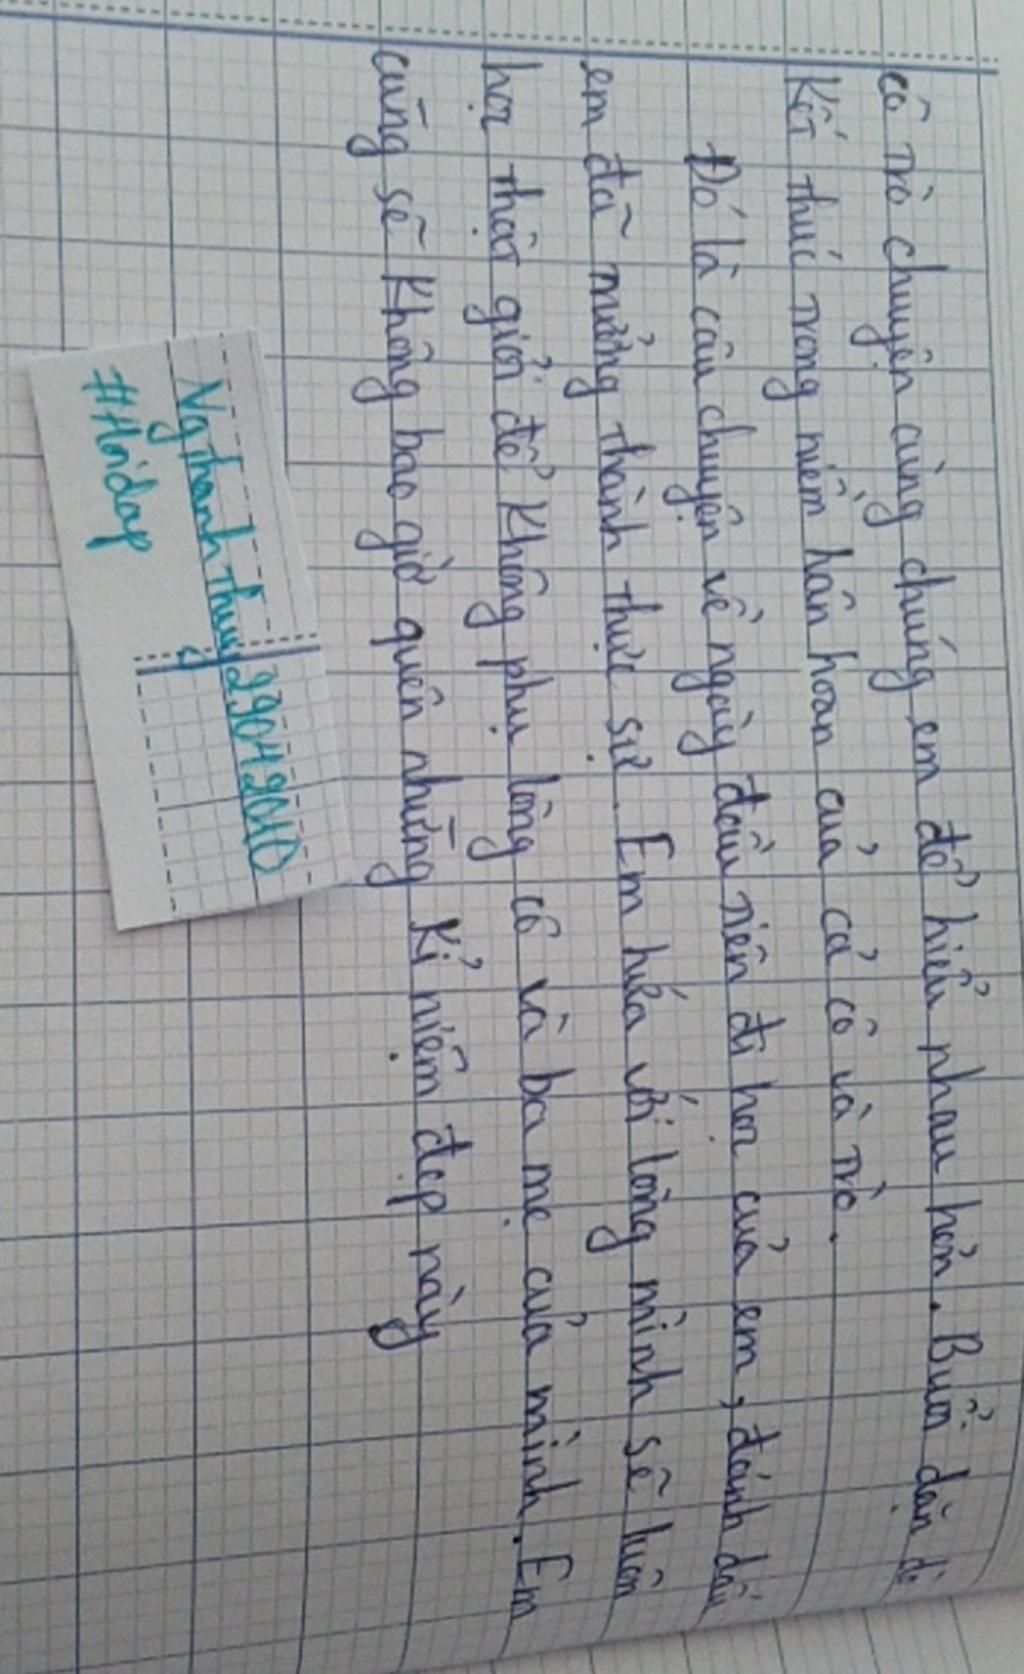 cô trò chuyện cùng chúng em để hiểu nhau hơn. Buổi dặn dò
kết thúc trong niềm hân hoan của cả cô và trò.
Đó là câu chuyện về ngày đầu tiên đi học của em, đánh dấu
em đã trưởng thành thực sự. Em hứa với lòng mình sẽ luôn
học thật giỏi để không phụ lòng cô và ba mẹ của mình. Em
cũng sẽ không bao giờ quên những kỉ niệm đẹp này
Ngthanhthuy29042010
#Hoidap